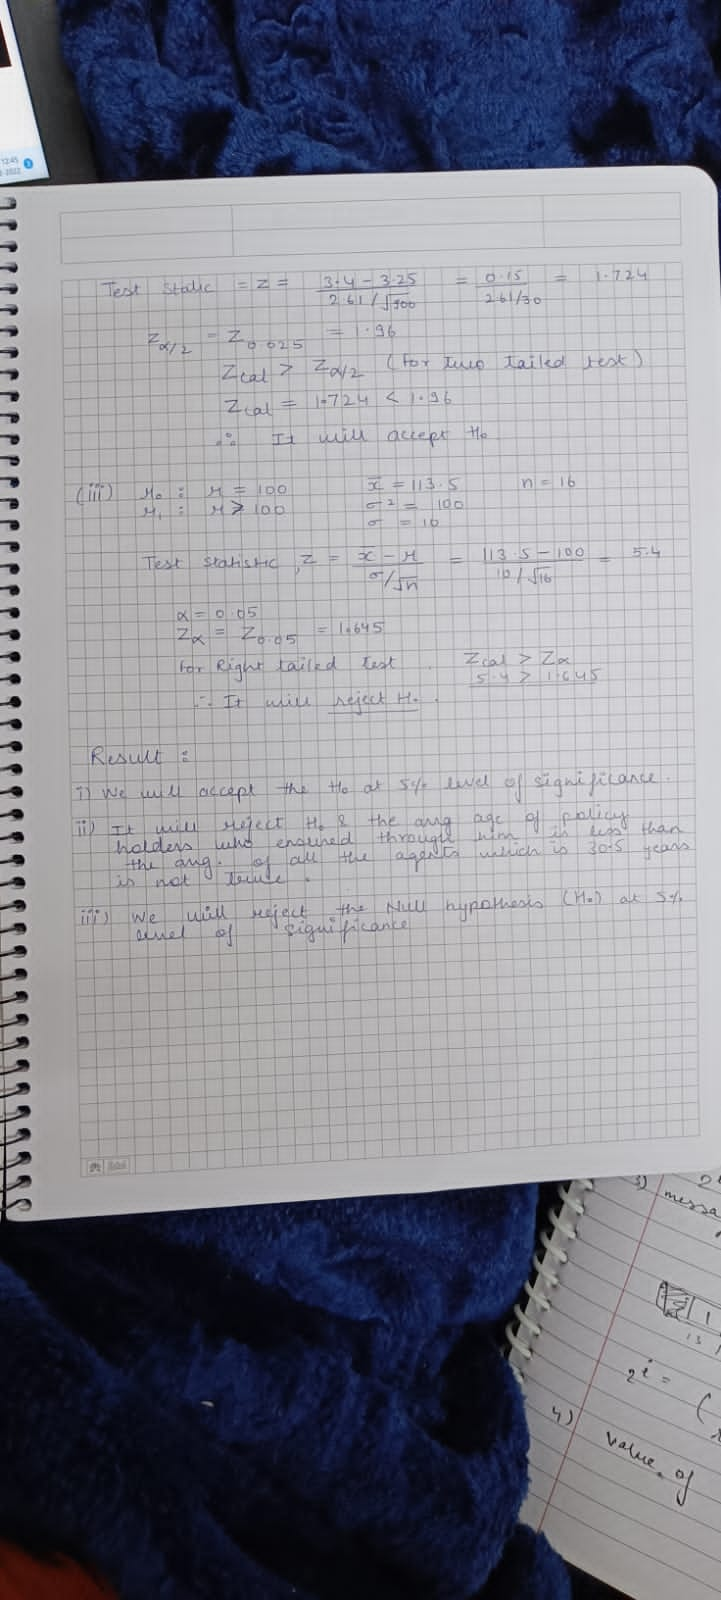 12:45
2022
Test Static = Z = 3.4 - 3.25 / 2.61/√900 = 0.15 / 2.61/30 = 1.724
Zα/2 = Z0.025 = 1.96
Zcal > Zα/2 (for two tailed test)
Zcal = 1.724 < 1.96
∴ It will accept H₀
(iii) H₀ : μ = 100 x̄ = 113.5 n = 16
H₁ : μ > 100 σ² = 100
σ = 10
Test Statistic, Z = x̄ - μ / σ/√n = 113.5 - 100 / 10/√16 = 5.4
α = 0.05
Zα = Z0.05 = 1.645
for Right tailed test. Zcal > Zα
5.4 > 1.645
∴ It will reject H₀.
Result :
i) We will accept the H₀ at 5% level of significance.
ii) It will reject H₀ & the avg age of policy
holders who ensured through him is less than
the avg. of all the agents which is 30.5 years
is not true.
iii) We will reject the Null hypothesis (H₀) at 5%
level of significance
3) messa
1
13
2i = (
4) Value of